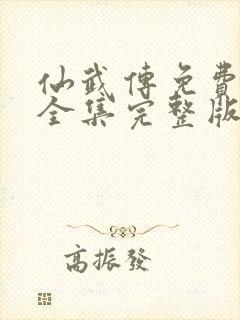 仙武傳免費
全集完整版
高振發